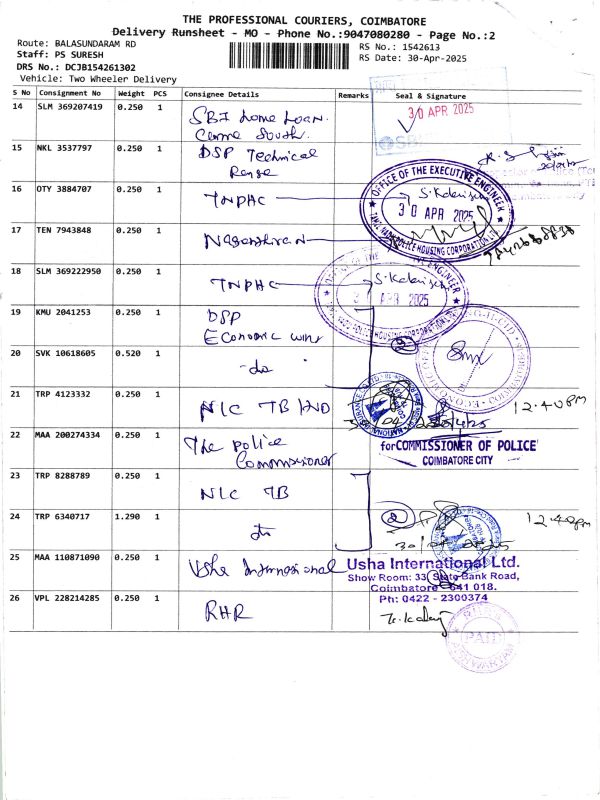 THE PROFESSIONAL COURIERS, COIMBATORE
Delivery Runsheet - MO - Phone No.:9047080280 - Page No.:2
Route: BALASUNDARAM RD
RS No.: 1542613
Staff: PS SURESH
RS Date: 30-Apr-2025
DRS No.: DCJB154261302
Vehicle: Two Wheeler Delivery
S No Consignment No Weight PCS Consignee Details Remarks Seal & Signature
14 SLM 369207419 0.250 1 SBI Home Loan
South.
30 APR 2025
SB
15 NKL 3537797 0.250 1 DSP Technical
16 OTY 3884707 0.250 1 TNPHC
OFFICE OF THE EXECUTIVE ENGINEER
30 APR 2025
POLICE HOUSING CORPORATION
17 TEN 7943848 0.250 1
18 SLM 369222950 0.250 1 TNPHC
APR 2025
19 KMU 2041253 0.250 1 DSP
Economic
20 SVK 10618605 0.520 1 -do-
2
21 TRP 4123332 0.250 1 NIC TB HND
12.40PM
22 MAA 200274334 0.250 1 The police
Commissioner
for COMMISSIONER OF POLICE
COIMBATORE CITY
23 TRP 8288789 0.250 1 NIC TB
24 TRP 6340717 1.290 1 do
2
12.40pm
25 MAA 110871090 0.250 1 Usha International
Usha International Ltd.
Show Room: 33, State Bank Road,
Coimbatore - 641 018.
Ph: 0422 - 2300374
26 VPL 228214285 0.250 1 RHR
PAID